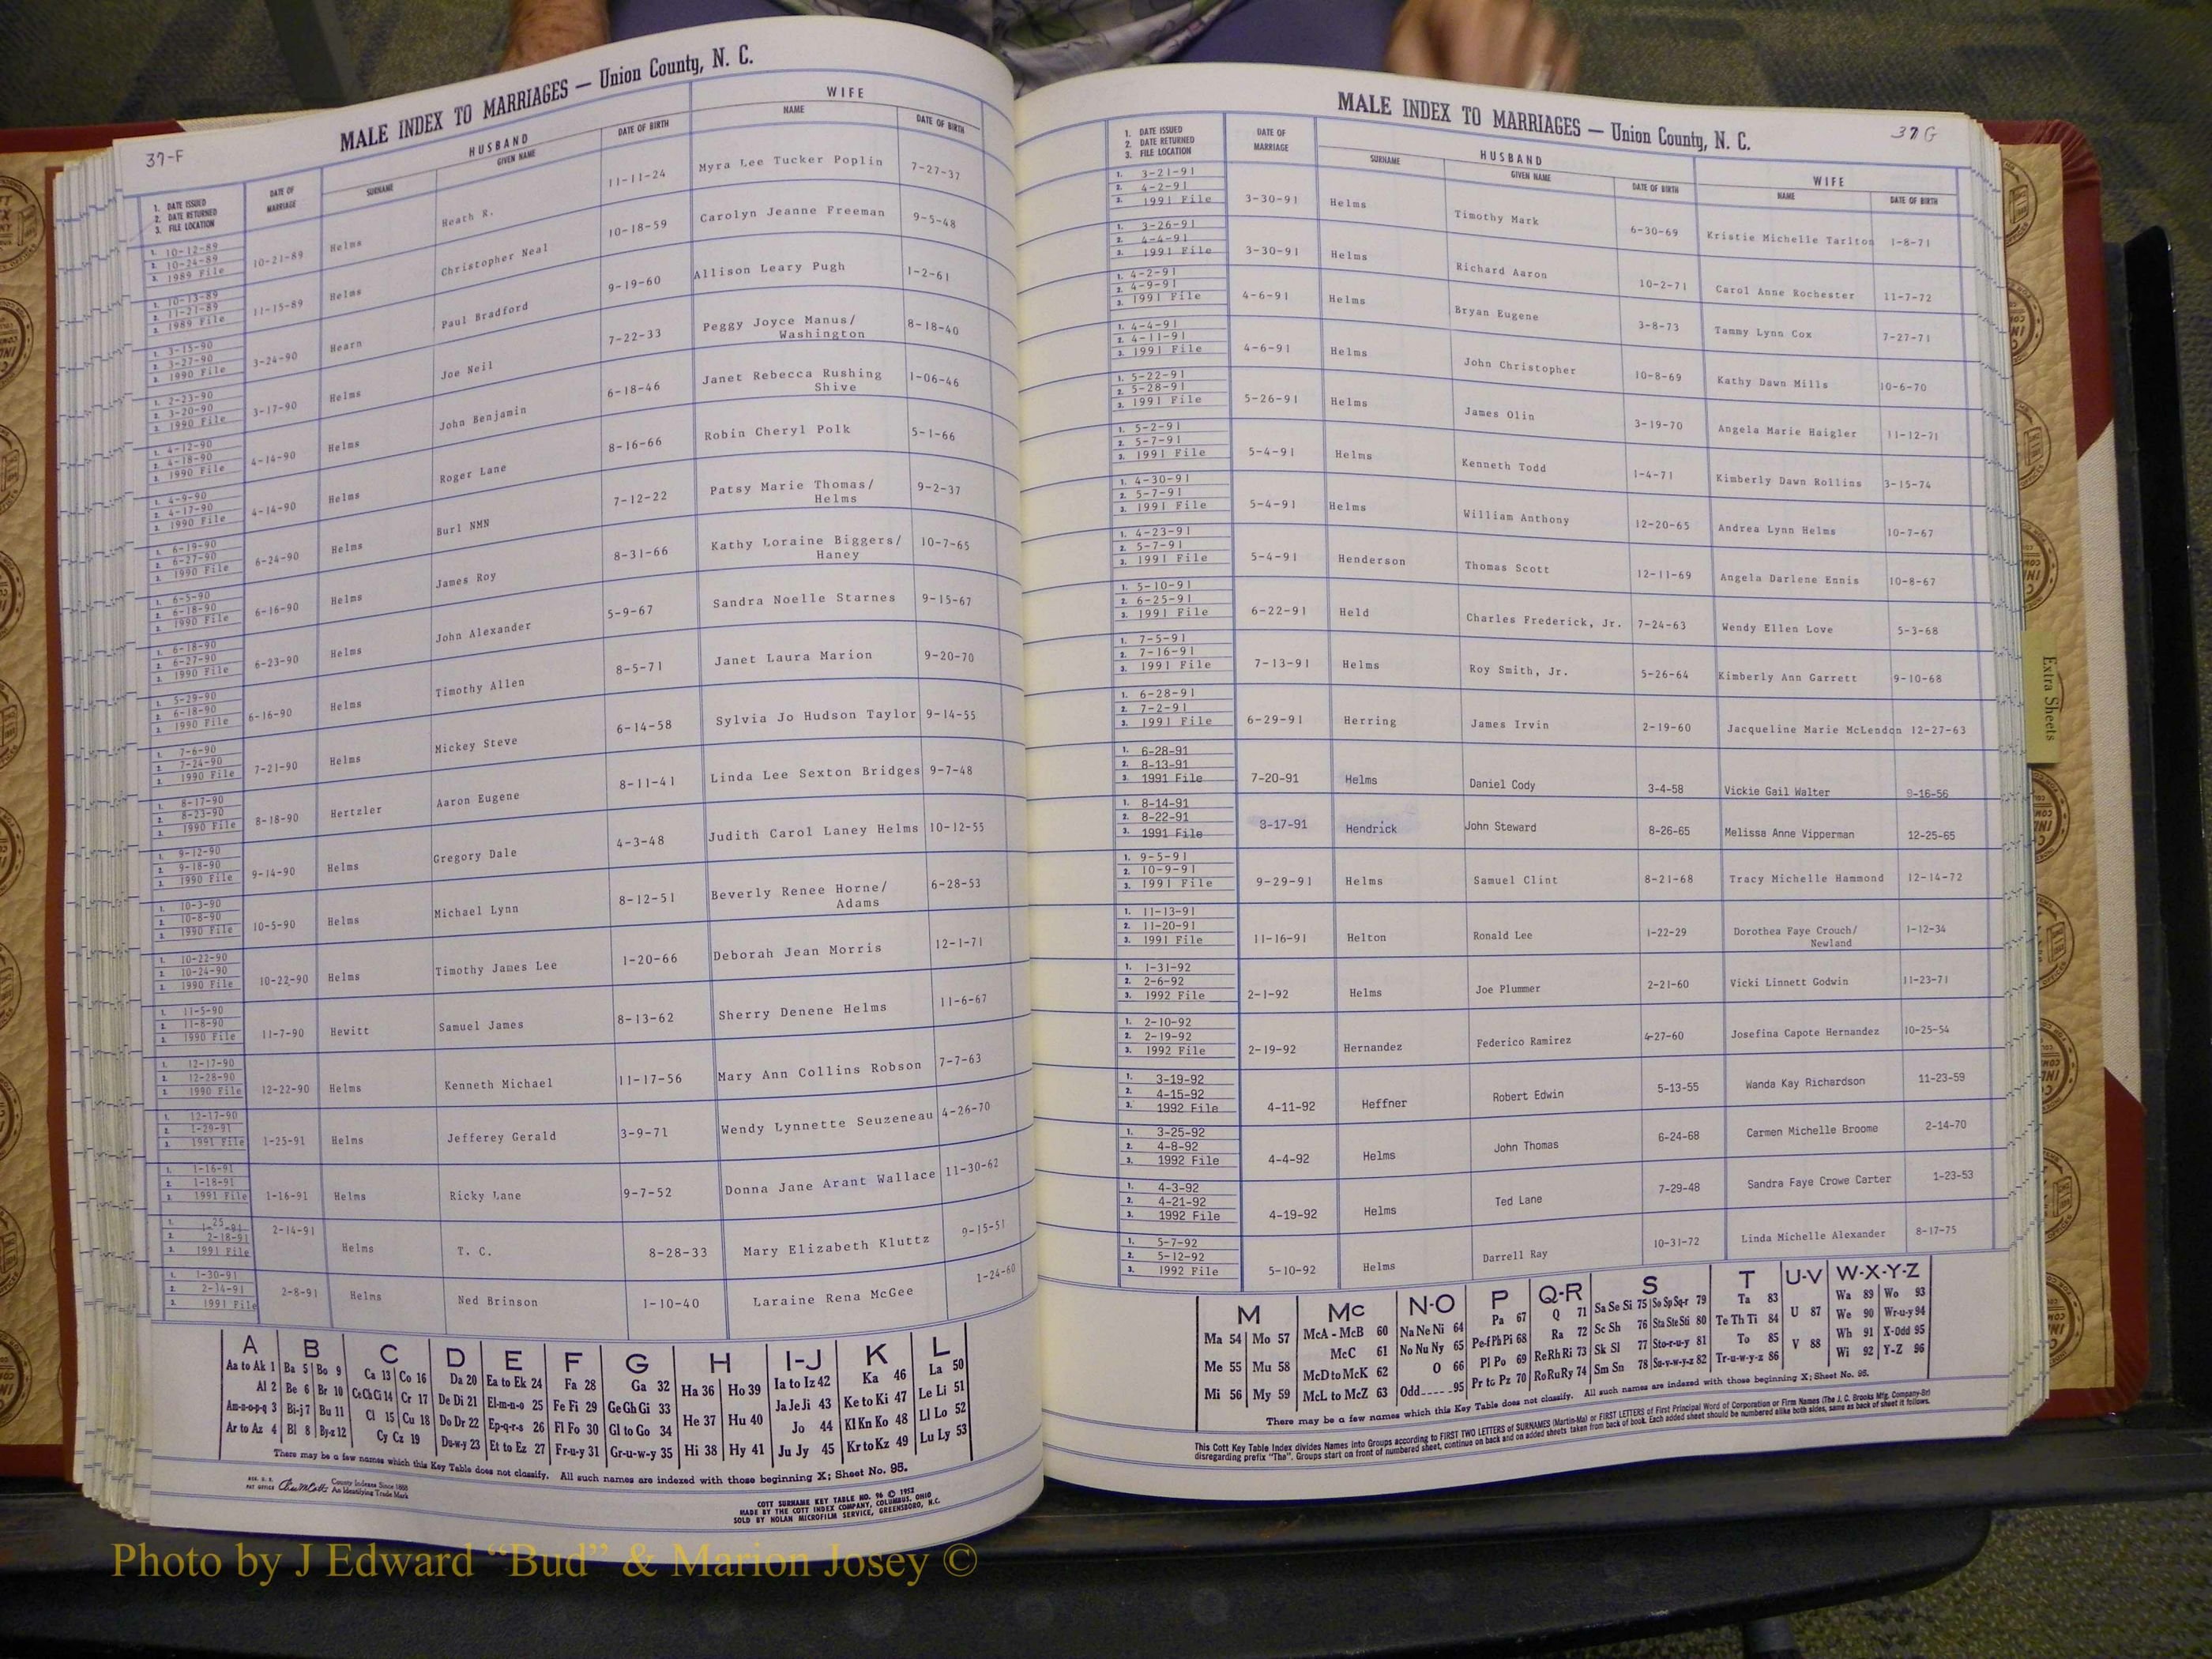 37-F
MALE INDEX TO MARRIAGES — Union County, N. C.
1. DATE ISSUED
2. DATE RETURNED
3. FILE LOCATION
DATE OF MARRIAGE
HUSBAND
SURNAME
GIVEN NAME
DATE OF BIRTH
WIFE
NAME
DATE OF BIRTH
1. 10-12-89 2. 10-24-89 3. 1989 File 10-21-89 Helms Heath R. 11-11-24 Myra Lee Tucker Poplin 7-27-37
1. 10-13-89 2. 11-21-89 3. 1989 File 11-15-89 Helms Christopher Neal 10-18-59 Carolyn Jeanne Freeman 9-5-48
1. 3-15-90 2. 3-27-90 3. 1990 File 3-24-90 Hearn Paul Bradford 9-19-60 Allison Leary Pugh 1-2-61
1. 2-23-90 2. 3-20-90 3. 1990 File 3-17-90 Helms Joe Neil 7-22-33 Peggy Joyce Manus/ Washington 8-18-40
1. 4-12-90 2. 4-18-90 3. 1990 File 4-14-90 Helms John Benjamin 6-18-46 Janet Rebecca Rushing Shive 1-06-46
1. 4-9-90 2. 4-17-90 3. 1990 File 4-14-90 Helms Roger Lane 8-16-66 Robin Cheryl Polk 5-1-66
1. 6-19-90 2. 6-27-90 3. 1990 File 6-24-90 Helms Burl NMN 7-12-22 Patsy Marie Thomas/ Helms 9-2-37
1. 6-5-90 2. 6-18-90 3. 1990 File 6-16-90 Helms James Roy 8-31-66 Kathy Loraine Biggers/ Haney 10-7-65
1. 6-18-90 2. 6-27-90 3. 1990 File 6-23-90 Helms John Alexander 5-9-67 Sandra Noelle Starnes 9-15-67
1. 5-29-90 2. 6-18-90 3. 1990 File 6-16-90 Helms Timothy Allen 8-5-71 Janet Laura Marion 9-20-70
1. 7-6-90 2. 7-24-90 3. 1990 File 7-21-90 Helms Mickey Steve 6-14-58 Sylvia Jo Hudson Taylor 9-14-55
1. 8-17-90 2. 8-23-90 3. 1990 File 8-18-90 Hertzler Aaron Eugene 8-11-41 Linda Lee Sexton Bridges 9-7-48
1. 9-12-90 2. 9-18-90 3. 1990 File 9-14-90 Helms Gregory Dale 4-3-48 Judith Carol Laney Helms 10-12-55
1. 10-3-90 2. 10-8-90 3. 1990 File 10-5-90 Helms Michael Lynn 8-12-51 Beverly Renee Horne/ Adams 6-28-53
1. 10-22-90 2. 10-24-90 3. 1990 File 10-22-90 Helms Timothy James Lee 1-20-66 Deborah Jean Morris 12-1-71
1. 11-5-90 2. 11-8-90 3. 1990 File 11-7-90 Hewitt Samuel James 8-13-62 Sherry Denene Helms 11-6-67
1. 12-17-90 2. 12-28-90 3. 1990 File 12-22-90 Helms Kenneth Michael 11-17-56 Mary Ann Collins Robson 7-7-63
1. 12-17-90 2. 1-29-91 3. 1991 File 1-25-91 Helms Jefferey Gerald 3-9-71 Wendy Lynnette Seuzeneau 4-26-70
1. 1-16-91 2. 1-18-91 3. 1991 File 1-16-91 Helms Ricky Lane 9-7-52 Donna Jane Arant Wallace 11-30-62
1. 1-25-91 2. 2-18-91 3. 1991 File 2-14-91 Helms T. C. 8-28-33 Mary Elizabeth Kluttz 9-15-51
1. 1-30-91 2. 2-14-91 3. 1991 File 2-8-91 Helms Ned Brinson 1-10-40 Laraine Rena McGee 1-24-60
A B C D E F G H I-J K L
Aa to Ak 1 Ba 5 Bo 9 Ca 13 Co 16 Da 20 Ea to Ek 24 Fa 28 Ga 32 Ha 36 Ho 39 Ia to Iz 42 Ka 46 La 50
Al 2 Be 6 Br 10 Ce Ch Ci 14 Cr 17 De Di 21 El-m-n-o 25 Fe Fi 29 Ge Gh Gi 33 He 37 Hu 40 Ja Je Ji 43 Ke to Ki 47 Le Li 51
Am-n-o-p-q 3 Bi-j 7 Bu 11 Cl 15 Cu 18 Do Dr 22 Ep-q-r-s 26 Fl Fo 30 Gl to Go 34 Hi 38 Hy 41 Jo 44 Kl Kn Ko 48 Ll Lo 52
Ar to Az 4 Bl 8 By-z 12 Cy Cz 19 Du-w-y 23 Et to Ez 27 Fr-u-y 31 Gr-u-w-y 35 Ju Jy 45 Kr to Kz 49 Lu Ly 53
There may be a few names which this Key Table does not classify. All such names are indexed with those beginning X; Sheet No. 95.
REG. U. S. PAT OFFICE County Indexes Since 1888 An Identifying Trade Mark
COTT SURNAME KEY TABLE NO. 96 © 1952
MADE BY THE COTT INDEX COMPANY, COLUMBUS, OHIO
SOLD BY NOLAN MICROFILM SERVICE, GREENSBORO, N.C.
MALE INDEX TO MARRIAGES — Union County, N. C.
37 G
1. DATE ISSUED
2. DATE RETURNED
3. FILE LOCATION
DATE OF MARRIAGE
HUSBAND
SURNAME
GIVEN NAME
DATE OF BIRTH
WIFE
NAME
DATE OF BIRTH
1. 3-21-91 2. 4-2-91 3. 1991 File 3-30-91 Helms Timothy Mark 6-30-69 Kristie Michelle Tarlton 1-8-71
1. 3-26-91 2. 4-4-91 3. 1991 File 3-30-91 Helms Richard Aaron 10-2-71 Carol Anne Rochester 11-7-72
1. 4-2-91 2. 4-9-91 3. 1991 File 4-6-91 Helms Bryan Eugene 3-8-73 Tammy Lynn Cox 7-27-71
1. 4-4-91 2. 4-11-91 3. 1991 File 4-6-91 Helms John Christopher 10-8-69 Kathy Dawn Mills 10-6-70
1. 5-22-91 2. 5-28-91 3. 1991 File 5-26-91 Helms James Olin 3-19-70 Angela Marie Haigler 11-12-71
1. 5-2-91 2. 5-7-91 3. 1991 File 5-4-91 Helms Kenneth Todd 1-4-71 Kimberly Dawn Rollins 3-15-74
1. 4-30-91 2. 5-7-91 3. 1991 File 5-4-91 Helms William Anthony 12-20-65 Andrea Lynn Helms 10-7-67
1. 4-23-91 2. 5-7-91 3. 1991 File 5-4-91 Henderson Thomas Scott 12-11-69 Angela Darlene Ennis 10-8-67
1. 5-10-91 2. 6-25-91 3. 1991 File 6-22-91 Held Charles Frederick, Jr. 7-24-63 Wendy Ellen Love 5-3-68
1. 7-5-91 2. 7-16-91 3. 1991 File 7-13-91 Helms Roy Smith, Jr. 5-26-64 Kimberly Ann Garrett 9-10-68
1. 6-28-91 2. 7-2-91 3. 1991 File 6-29-91 Herring James Irvin 2-19-60 Jacqueline Marie McLendon 12-27-63
1. 6-28-91 2. 8-13-91 3. 1991 File 7-20-91 Helms Daniel Cody 3-4-58 Vickie Gail Walter 9-16-56
1. 8-14-91 2. 8-22-91 3. 1991 File 8-17-91 Hendrick John Steward 8-26-65 Melissa Anne Vipperman 12-25-65
1. 9-5-91 2. 10-9-91 3. 1991 File 9-29-91 Helms Samuel Clint 8-21-68 Tracy Michelle Hammond 12-14-72
1. 11-13-91 2. 11-20-91 3. 1991 File 11-16-91 Helton Ronald Lee 1-22-29 Dorothea Faye Crouch/ Newland 1-12-34
1. 1-31-92 2. 2-6-92 3. 1992 File 2-1-92 Helms Joe Plummer 2-21-60 Vicki Linnett Godwin 11-23-71
1. 2-10-92 2. 2-19-92 3. 1992 File 2-19-92 Hernandez Federico Ramirez 4-27-60 Josefina Capote Hernandez 10-25-54
1. 3-19-92 2. 4-15-92 3. 1992 File 4-11-92 Heffner Robert Edwin 5-13-55 Wanda Kay Richardson 11-23-59
1. 3-25-92 2. 4-8-92 3. 1992 File 4-4-92 Helms John Thomas 6-24-68 Carmen Michelle Broome 2-14-70
1. 4-3-92 2. 4-21-92 3. 1992 File 4-19-92 Helms Ted Lane 7-29-48 Sandra Faye Crowe Carter 1-23-53
1. 5-7-92 2. 5-12-92 3. 1992 File 5-10-92 Helms Darrell Ray 10-31-72 Linda Michelle Alexander 8-17-75
M Mc N-O P Q-R S T U-V W-X-Y-Z
Ma 54 Mo 57 McA - McB 60 Na Ne Ni 64 Pa 67 Q 71 Sa Se Si 75 So Sp Sq-r 79 Ta 83 U 87 Wa 89 Wo 93
Me 55 Mu 58 McC 61 No Nu Ny 65 Pe-f Ph Pi 68 Ra 72 Sc Sh 76 Sta Ste Sti 80 Te Th Ti 84 V 88 We 90 Wr-u-y 94
Mi 56 My 59 McD to McK 62 O 66 Pl Po 69 Re Rh Ri 73 Sk Sl 77 Sto-r-u-y 81 To 85 Wh 91 X-Odd 95
McL to McZ 63 Odd 95 Pr to Pz 70 Ro Ru Ry 74 Sm Sn 78 Su-v-w-y-z 82 Tr-u-w-y-z 86 Wi 92 Y-Z 96
There may be a few names which this Key Table does not classify. All such names are indexed with those beginning X; Sheet No. 95.
This Cott Key Table Index divides Names into Groups according to FIRST TWO LETTERS of SURNAMES (Martin-Ma) or FIRST LETTERS of First Principal Word of Corporation or Firm Names (The J. C. Brooks Mfg. Company-Br)
disregarding prefix "The". Groups start on front of numbered sheet, continue on back and on added sheets taken from back of book. Each added sheet should be numbered alike both sides, same as back of sheet it follows.
Extra Sheets
Photo by J Edward “Bud” & Marion Josey ©